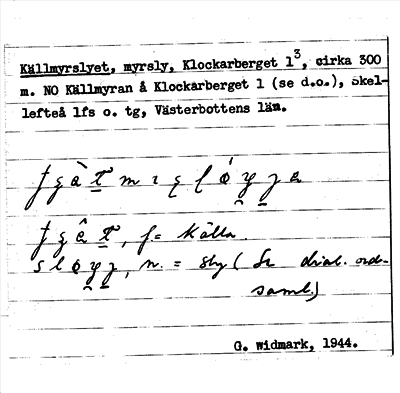 Källmyrslyet, myrsly, Klockarberget 1³, cirka 300
m. NO Källmyran å Klockarberget 1 (se d.o.), Skel-
lefteå lfs o. tg, Västerbottens län.
f. = källa
n. = sly (Se dial. ord-
saml.)
G. Widmark, 1944.